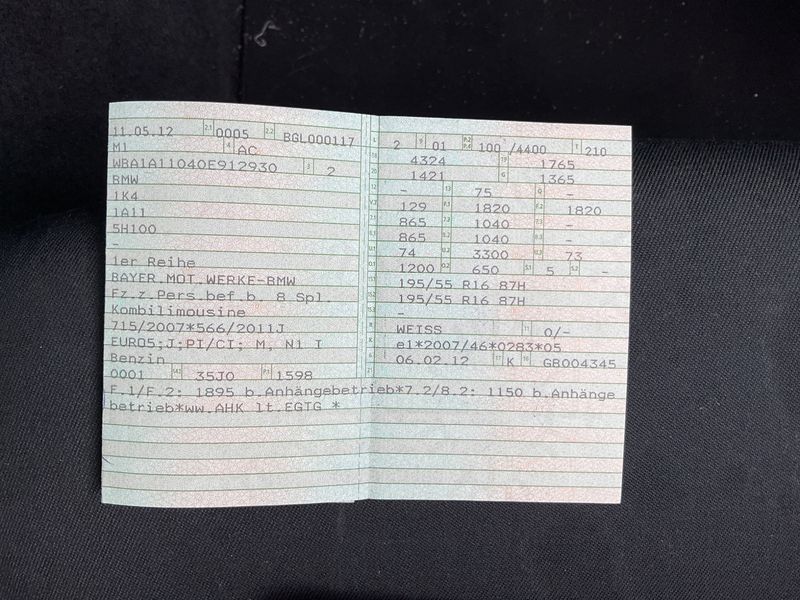 11.05.12 2.1 0005 2.2 BGL000117
M1 4 AC
WBA1A11040E912930 3 2
BMW
1K4
1A11
5H100
-
1er Reihe
BAYER.MOT.WERKE-BMW
Fz.z.Pers.bef.b. 8 Spl.
Kombilimousine
715/2007*566/2011J
EURO5;J;PI/CI; M, N1 I
Benzin
0001 35J0 1598
F.1/F.2: 1895 b.Anhängebetrieb*7.2/8.2: 1150 b.Anhänge
betrieb*ww.AHK lt.EGTG *
2 9 01 P.2 P.4 100 /4400 T 210
4324 1765
1421 G 1365
- 13 75 Q -
129 F.1 1820 F.2 1820
865 1040 -
865 1040 -
74 U.2 3300 U.3 73
1200 O.2 650 S.1 5 S.2 -
195/55 R16 87H
195/55 R16 87H
-
WEISS 11 0/-
e1*2007/46*0283*05
06.02.12 17 K 16 GB004345